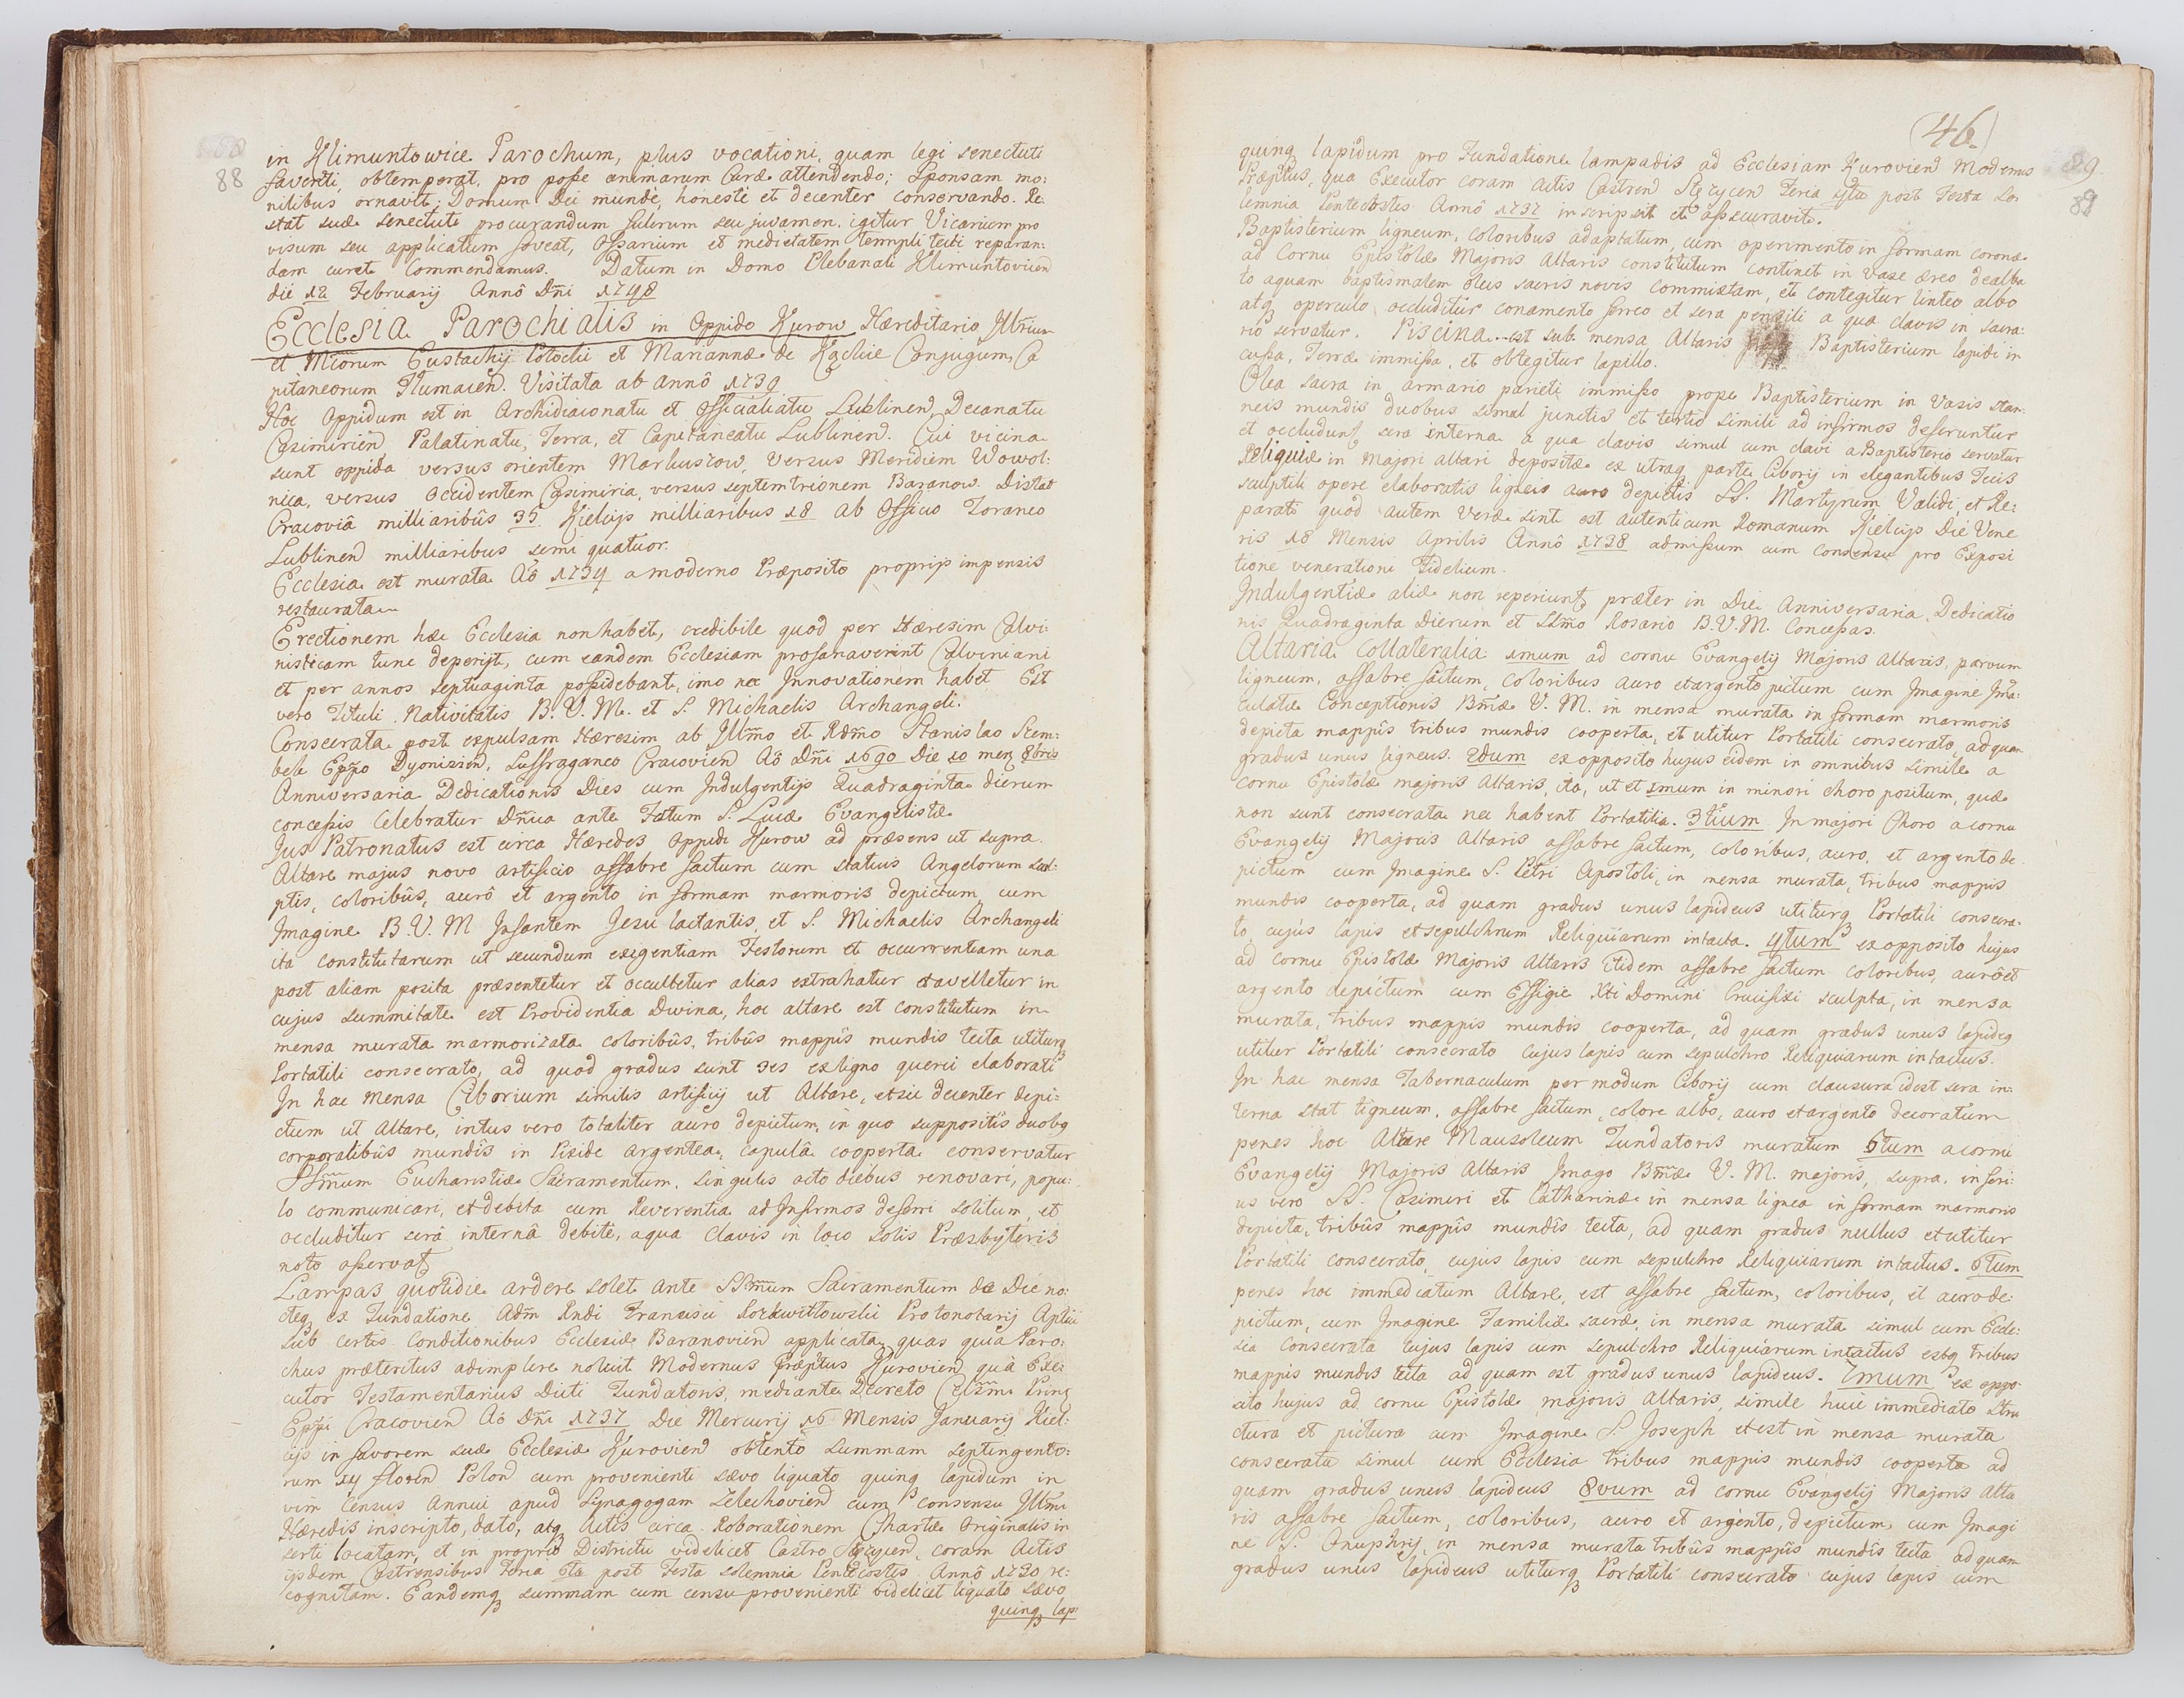 88
in Klimuntowice Parochum, plus vocationi, quam legi senectuti
faventi, obtemperat, pro posse animarum Curæ attendendo; Sponsam mo:
nilibus ornavit; Domum Dei mundè, honestè et decenter conservando. Re
stat suæ senectuti procurandum fulcrum seu juvamen. igitur Vicarium pro
visum seu applicatum foveat, Ossarium et medietatem templi tecti reparan:
dam curet Commendamus. Datum in Domo Plebanali Klimuntovien
die 12 Februarij Annô Dñi 1748
Ecclesia Parochialis in Oppido Kurow Hæreditario Illrium
et Mcorum Eustachij Potocki et Mariannæ de Kąckie Conjugum, Ca
pitaneorum Tlumacen. Visitata ab annô 1739
Hoc Oppidum est in Archidiaconatu et Officialiatu Lublinen, Decanatu
Casimirien, Palatinatu, Terra, et Capitaneatu Lublinen. Cui vicina
sunt oppida versus orientem Markuszow, versus Meridiem Wowol:
nica, versus Occidentem Casimiria, versus septemtrionem Baranow. Distat
Cracoviâ milliaribûs 35. Kielcijs milliaribus 18 ab Officio Foraneo
Lublinen milliaribus semi quatuor.
Ecclesia est murata Aô 1734 a moderno Præposito proprijs impensis
restaurata
Erectionem hæc Ecclesia non habet, credibile quod per Hæresim Calvi:
nisticam tunc deperijt, cum eandem Ecclesiam profanaverint Calviniani
et per annos septuaginta possidebant, imo nec Innovationem habet Est
vero Tituli Nativitatis B. V. M. et S. Michaelis Archangeli.
Consecrata post expulsam Hæresim ab Illmo et Rdmo Stanislao Szem:
bek Eppo Dyonisien, Suffraganeo Cracovien Aô Dñi 1690 Die 10 mens 8bris
Anniversaria Dedicationis Dies cum Indulgentijs Quadraginta dierum
concessis Celebratur Dñica ante Fstum S. Lucæ Evangelistæ
Jus Patronatus est circa Hæredes Oppidi Kurow ad præsens ut supra.
Altare majus novo artificio affabre factum cum statuis Angelorum scul:
ptis, coloribûs, aurô et argento in formam marmoris depictum, cum
Imagine B. V. M Infantem Jesu lactantis, et S. Michaelis Archangeli
ita constitutarum ut secundum exigentiam Festorum et occurrentiam una
post aliam posita præsentetur et occultetur alias extrahatur et avelletur in
cujus summitate est Providentia Divina, hoc altare est constitutum in
mensa murata marmorizata coloribûs, tribûs mappis mundis tecta utiturq
Portatili consecrato, ad quod gradus sunt 3es ex ligno querci elaborati
In hac Mensa Ciborium similis artificij ut Altare, et sic decenter depi:
ctum ut Altare, intus vero totaliter auro depictum, in quo suppositis duobq
corporalibûs mundîs in Pixide argentea, cupulâ cooperta conservatur
SSmum Eucharistiæ Sacramentum, singulis octo diebus renovari, popu:
lo communicari, et debita cum Reverentia ad Infirmos deferri solitum, et
occluditur serâ internâ debitè, a qua Clavis in loco solis Præsbyteris
noto asservat
Lampas quotidie ardere solet ante SSmum Sacramentum de Die no:
cteq ex Fundatione Adm Rndi Francisci Rozkwitowski Protonotarij Aplici
sub certis Conditionibus Ecclesiæ Baranovien applicata, quas quia Paro:
chus præteritus adimplere noluit Modernus Præptus Kurovien quâ Exe:
cutor Testamentarius Dicti Fundatoris, mediante Decreto Celsmi Princ
Eppi Cracovien Aô Dñi 1737 Die Mercurij 16 Mensis Januarij Kiel:
cijs in favorem suæ Ecclesiæ Kurovien obtento summam septingento:
rum xy floren Polon cum provenienti sævo liquato quinq lapidum in
vim Census Annui apud Synagogam Zelechovien cum consensu Illmi
Hæredis inscripto, dato, atq Actis circa Roborationem Chartæ Originalis in
serti locatam, et in proprio Districtu videlicet Castro Stężycen, coram Actis
ijsdem Castrensibus Feria 6ta post Festa solemnia Pentecostes Annô 1730 re:
cognitam. Eandemq summam cum censu provenienti videlicet liquato sævo
quinq lap:
46
89
quinq lapidum pro Fundatione lampadis ad Ecclesiam Kurovien Modernus
Præptus, qua Executor coram actis Castren Stężycen Feria 4ta post Festa So:
lemnia Pentecostes Annô 1737 inscripsit et assecuravit.
Baptisterium ligneum, coloribus adaptatum, cum operimento in formam coronæ
ad Cornu Epistolæ Majoris Altaris constitutum continet in vase æreo dealba
to aquam baptismalem oleis sacris novis commixtam, et contegitur linteo albo
atq operculo occluditur conamento ferreo et sera pensili a qua clavis in sacra:
rio servatur. Piscina est sub mensa Altaris Baptisterium lapidi in
cussa, Terræ immissa, et obtegitur lapillo.
Olea sacra in armario parieti immisso prope Baptisterium in Vasis stan:
neis mundis duobus simul junctis et tertio simili ad infirmos deferuntur
et occludunt sera interna a qua clavis simul cum clavi a Baptisterio servatur
Reliquiæ in Majori altari depositæ ex utraq parte Ciborij in elegantibus Tecis
sculptili opere elaboratis ligneis auro depictis SS. Martyrum Validi, et Re:
parati quod autem veræ sint est autenticum Romanum Kielcijs Die Vene
ris 18 Mensis Aprilis Annô 1738 admissum cum consensu pro Exposi
tione venerationi Fidelium.
Indulgentiæ aliæ non reperiunt, præter in Die Anniversaria Dedicatio
nis Quadraginta Dierum et SSmo Rosario B. V. M. Concessas.
Altaria Collateralia 1mum ad cornu Evangelij Majoris Altaris, parvum
ligneum, affabre factum, coloribus auro et argento pictum cum Imagine Ima:
culatæ Conceptionis Bmæ V. M. in mensa murata in formam marmoris
depicta mappis tribus mundis cooperta, et utitur Portatili consecrato, ad quam
gradus unus ligneus. 2dum ex opposito hujus eidem in omnibus simile a
Cornu Epistolæ majoris Altaris, ita, ut et 1mum in minori choro positum, quæ
non sunt consecrata nec habent Portatilia. 3tium In majori Choro a cornu
Evangelij Majoris Altaris affabre factum, coloribus, auro, et argento de
pictum cum Imagine S. Petri Apostoli, in mensa murata, tribus mappis
mundis cooperta, ad quam gradus unus lapideus utiturq Portatili consecra:
to, cujus lapis et sepulchrum Reliquiarum intacta. 4tum ex opposito hujus
ad cornu Epistolæ Majoris Altaris itidem affabre factum coloribus, auro et
argento depictum cum Effigie Xti Domini Crucifixi sculpta, in mensa
murata, tribus mappis mundis cooperta, ad quam gradus unus lapideq
utitur Portatili consecrato cujus lapis cum sepulchro Reliquiarum intactus.
In hac mensa Tabernaculum per modum Ciborij cum clausura idest sera in:
terna stat ligneum, affabre factum, colore albo, auro et argento decoratum
penes hoc Altare Mausoleum Fundatoris muratum 5tum a cornu
Evangelij Majoris Altaris Imago Bmæ V. M. majoris, supra, inferi:
us vero SS. Casimiri et Catharinæ in mensa lignea in formam marmoris
depicta, tribûs mappîs mundîs tecta, ad quam gradus nullus et utitur
Portatili consecrato, cujus lapis cum sepulchro Reliquiarum intactus. 6tum
penes hoc immediatum Altare, est affabre factum, coloribus, et auro de:
pictum, cum Imagine Familiæ sacræ, in mensa murata simul cum Eccle:
sia consecrata cujus lapis cum sepulchro Reliquiarum intactus estq tribus
mappis mundis tecta ad quam est gradus unus lapideus. 7mum ex oppo:
sito hujus ad cornu Epistolæ majoris Altaris, simile huic immediato stru
ctura et pictura cum Imagine S. Joseph et est in mensa murata
consecrata simul cum Ecclesia tribus mappis mundis cooperta ad
quam gradus unus lapideus 8vum ad cornu Evangelij Majoris Alta
ris affabre factum, coloribus, auro et argento, depictum, cum Imagi
ne S. Onuphrij, in mensa murata tribûs mappîs mundîs tecta ad quam
gradus unus lapideus utiturq Portatili consecrato cujus lapis cum